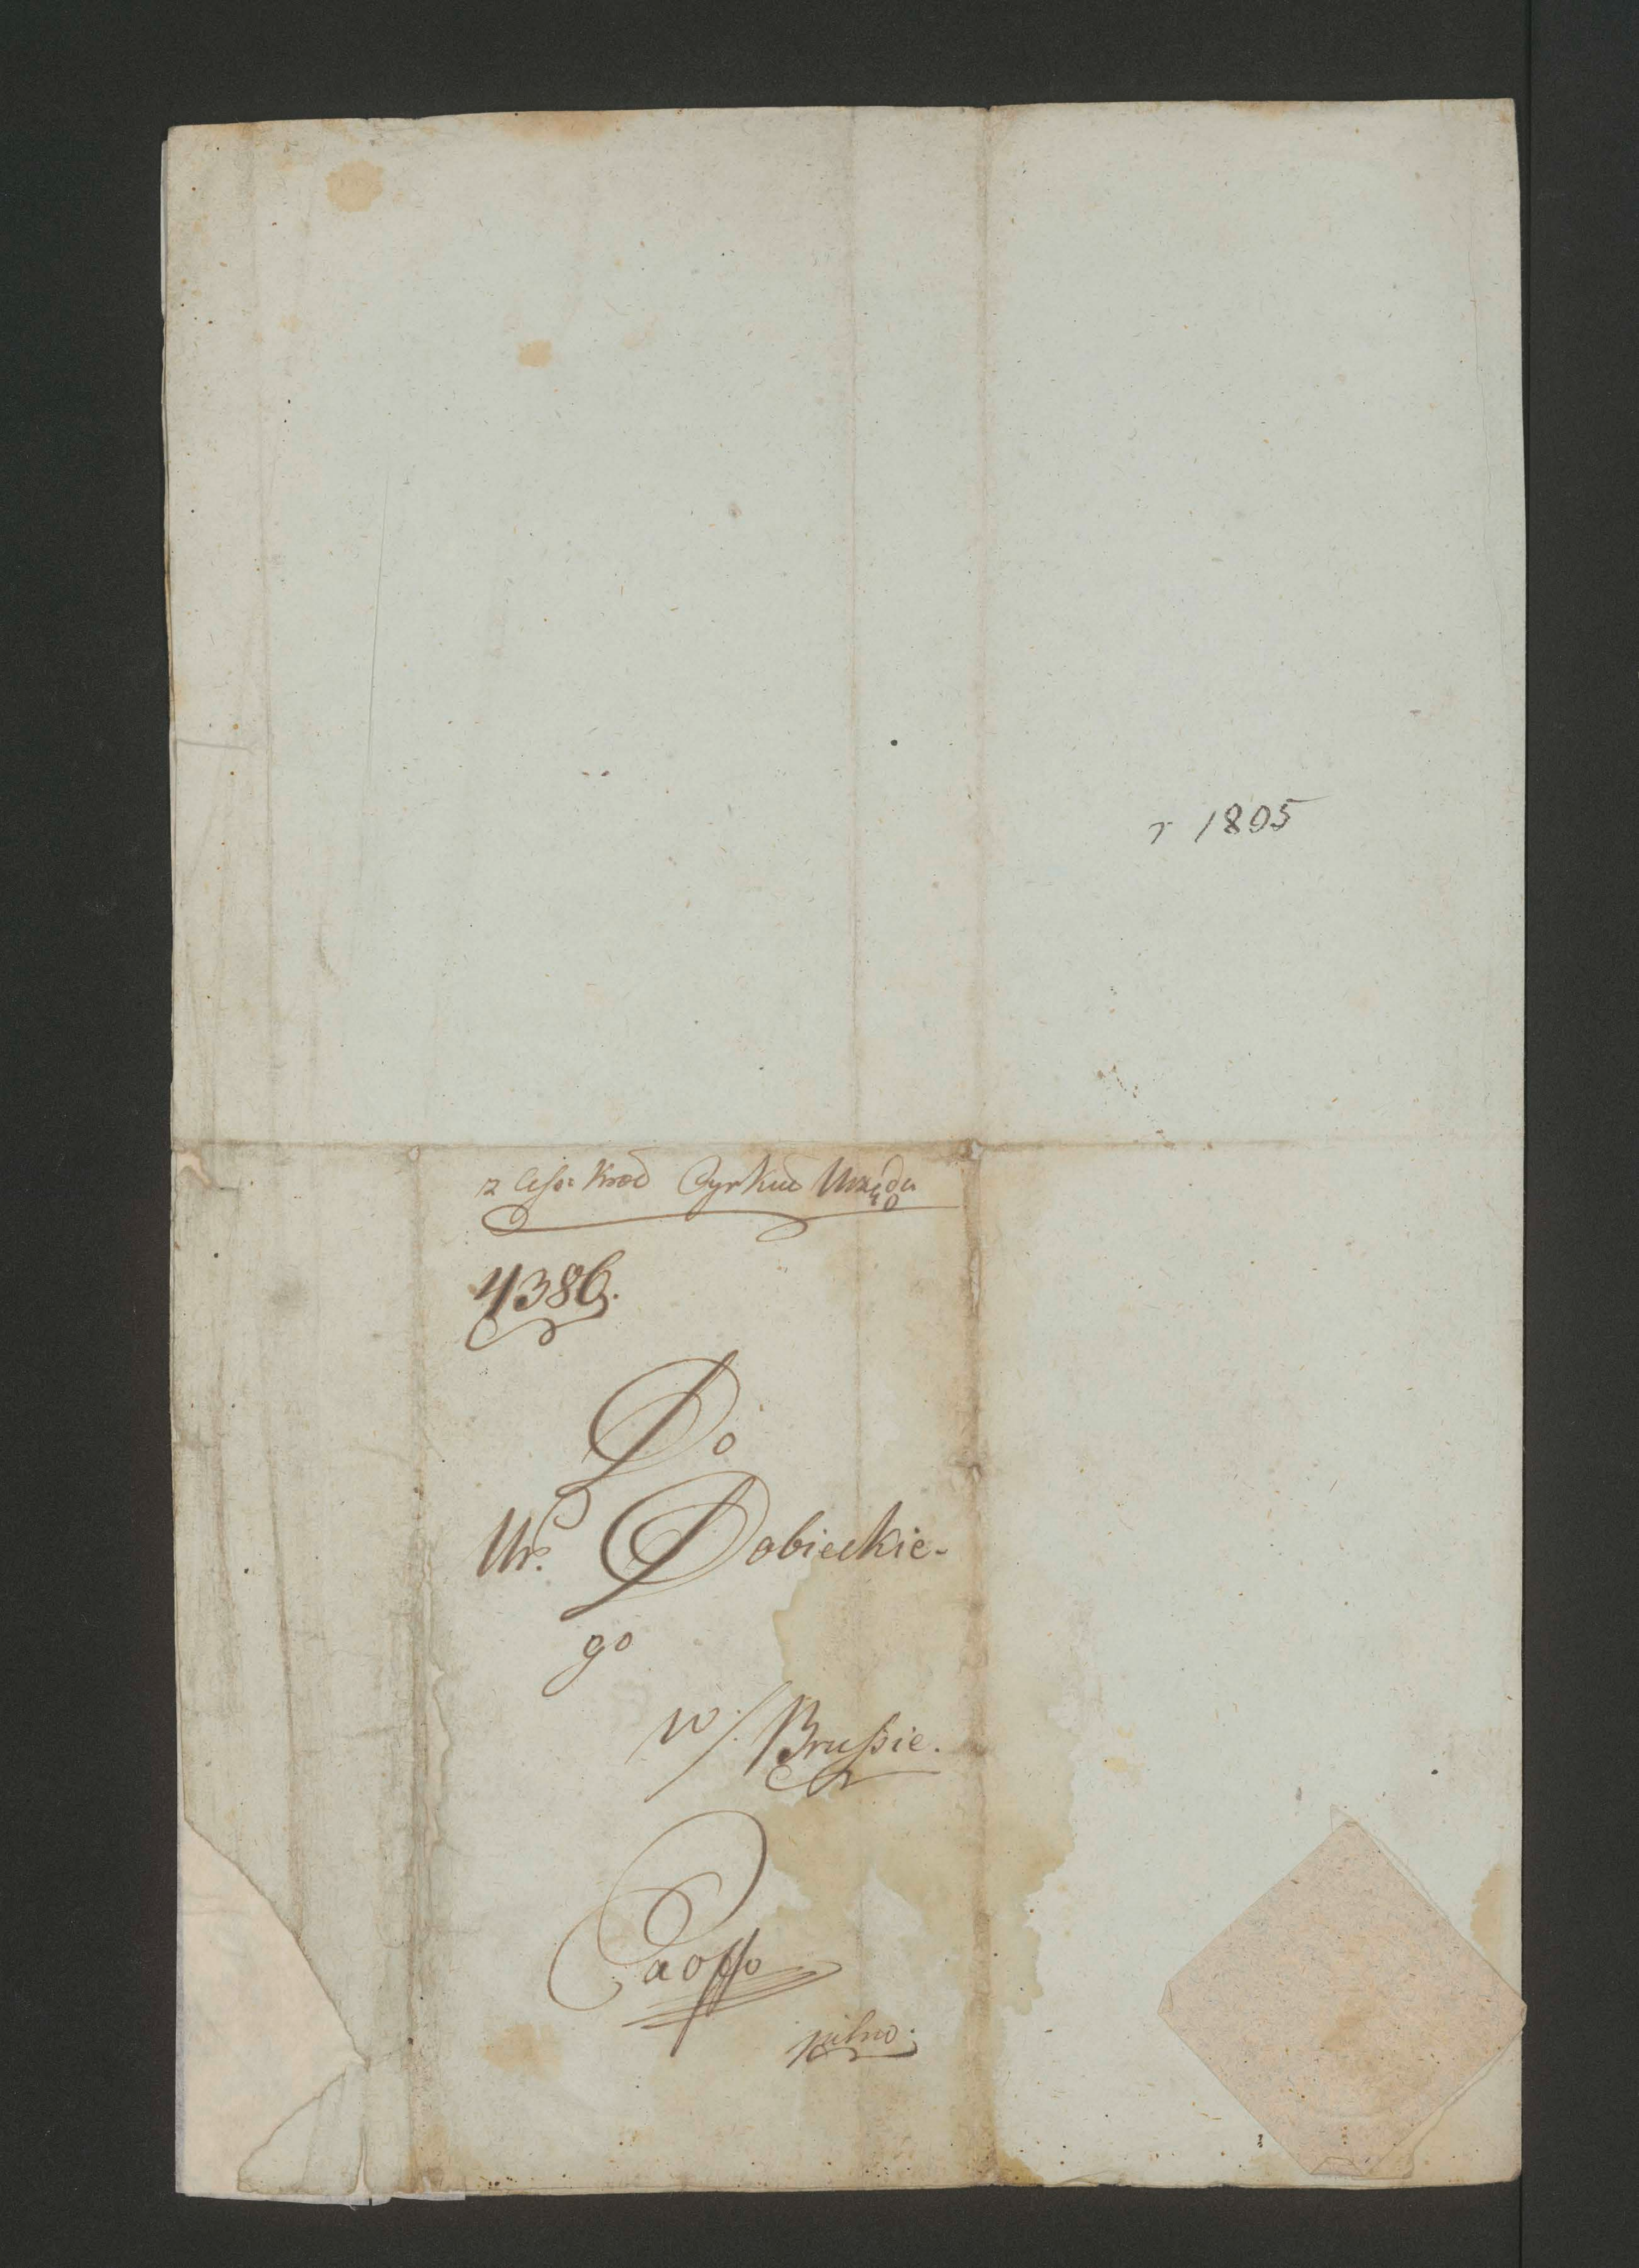 r 1805
z Cesr. Krol Cyrkul Urzędu
4386.
Do
Ur. Dobieckie-
go
w/. Brußie.
pilno.